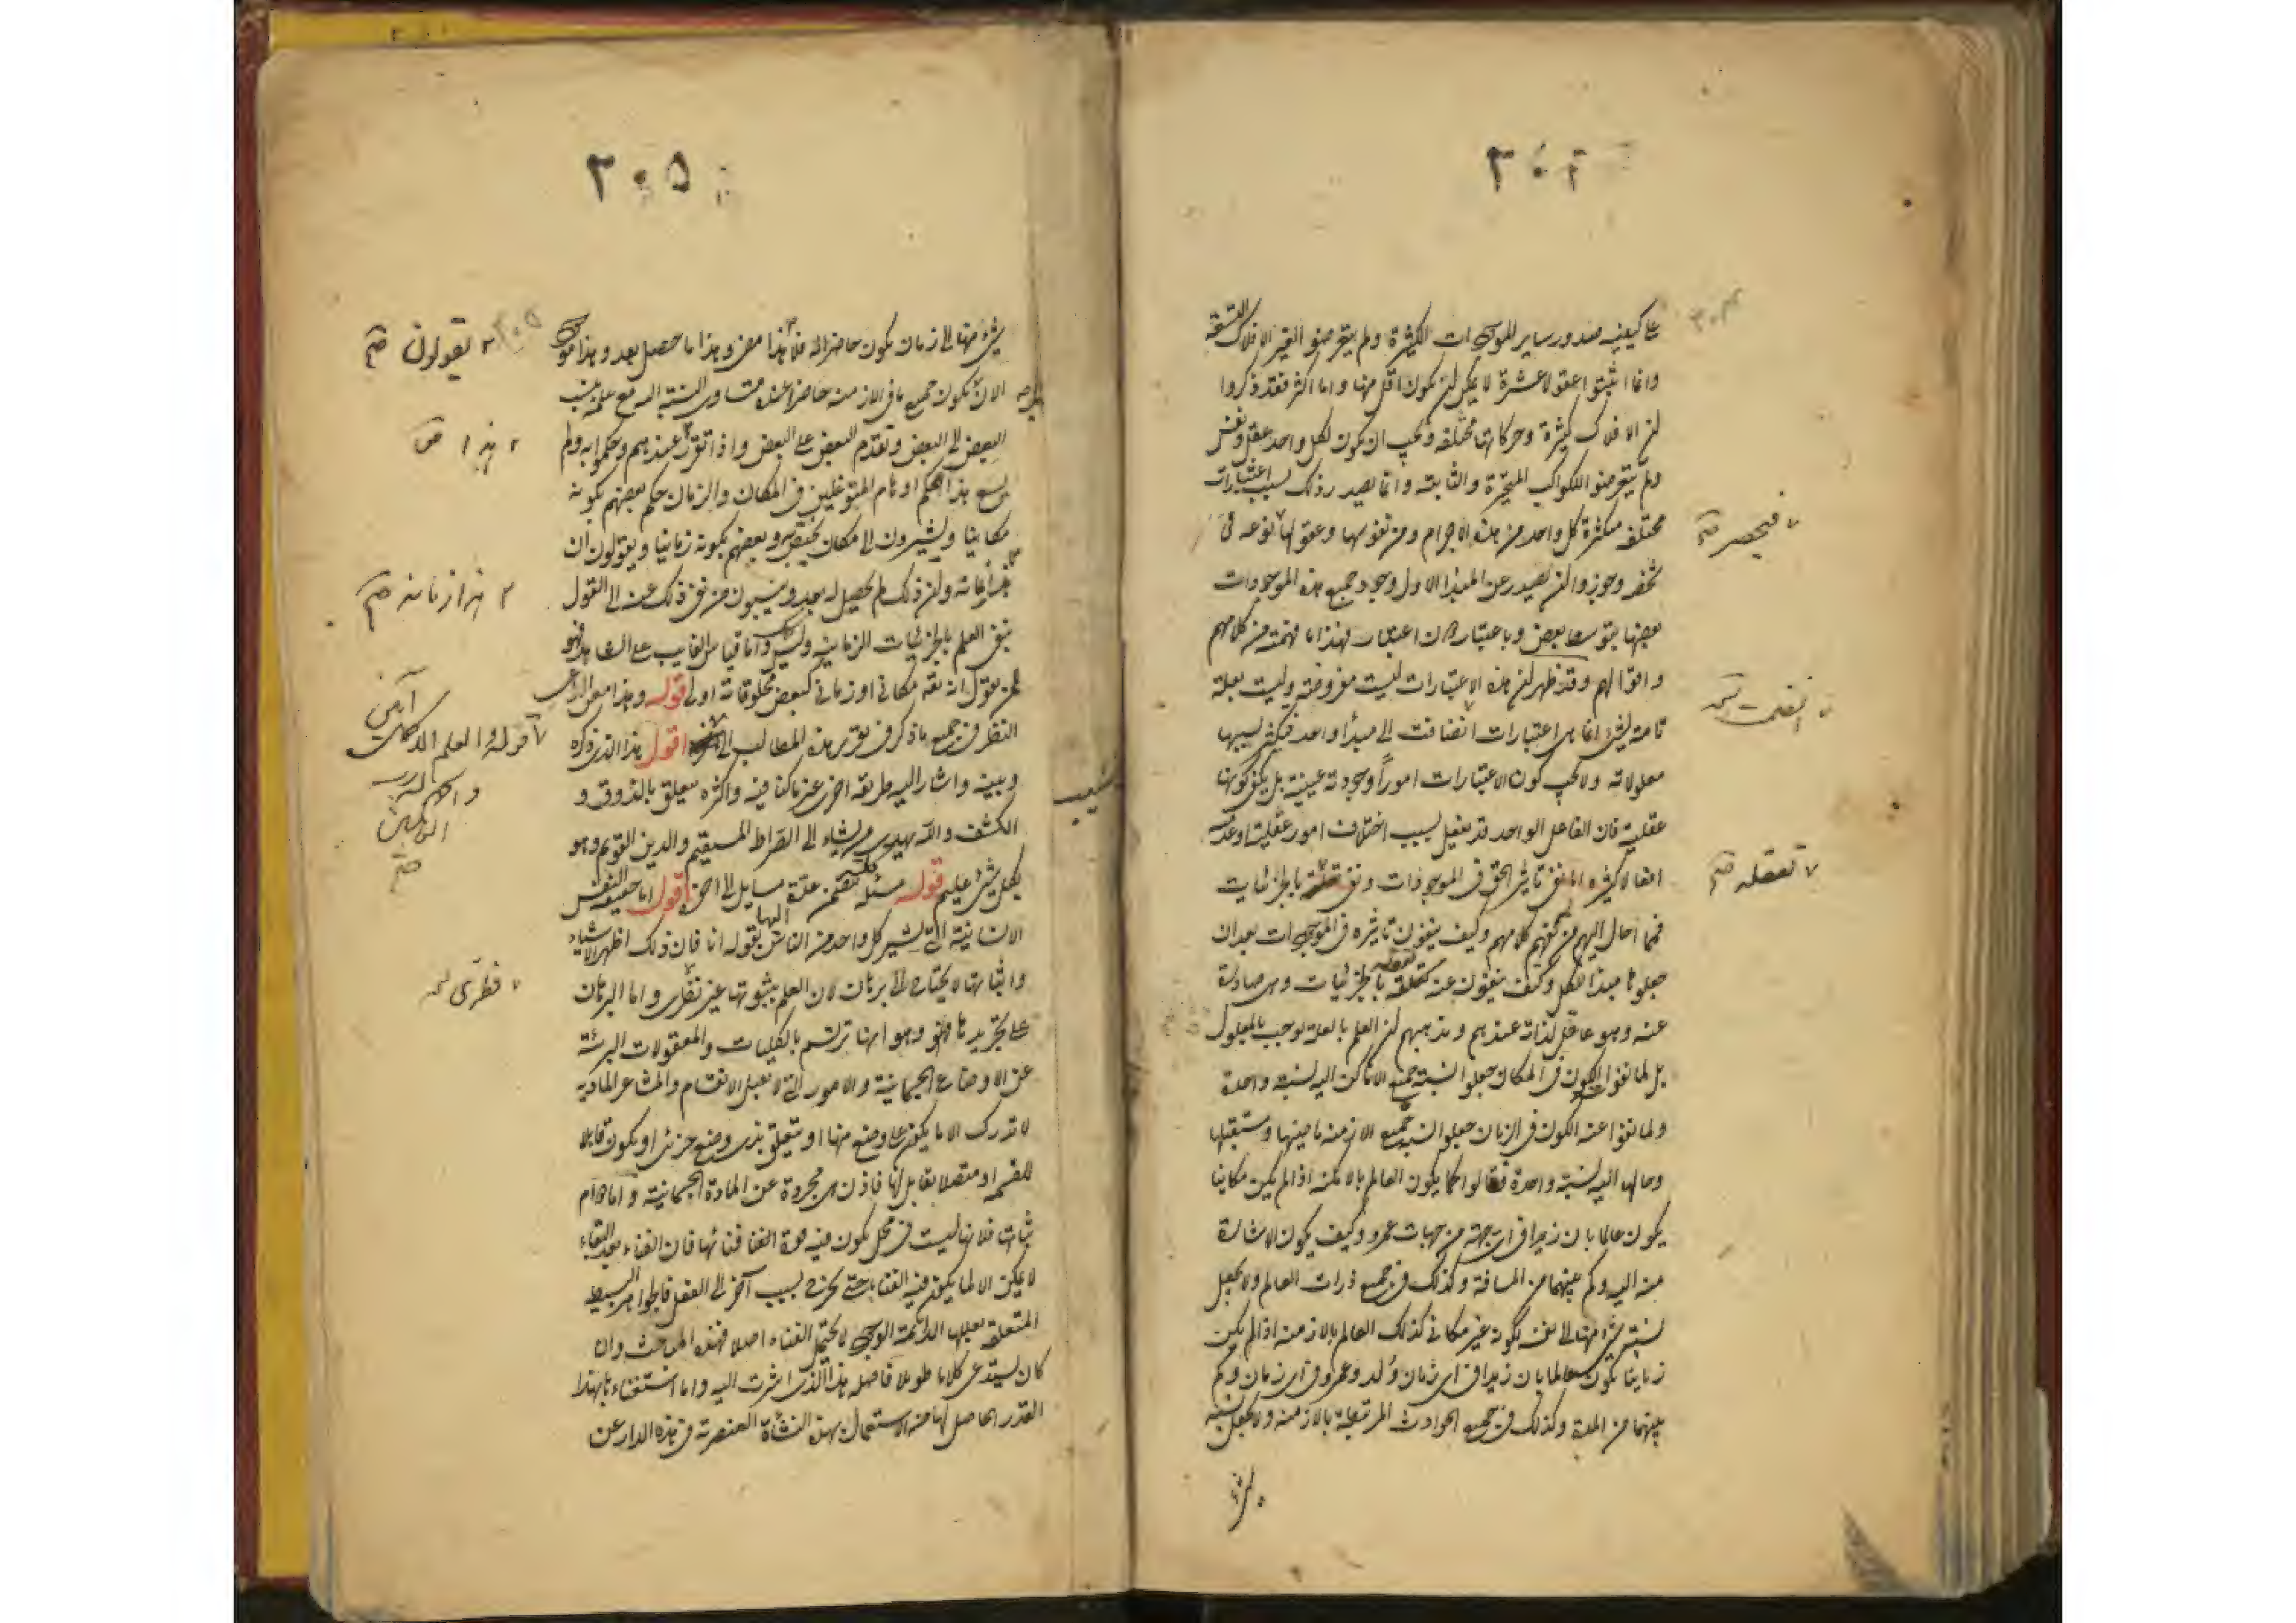 ٣٠٤
على كيفية صدور ساير الموجودات الكثيرة ولم يتعرضوا لغير الافلاك التسعة
وانما اثبتوا عقولا عشرة لا يمكن ان يكون اقل منها واما اكثر فقد ذكروا
ان الافلاك كثيرة وحركاتها مختلفة ويجب ان يكون لكل واحد عقل ونفس
ولم يتعرضوا للكواكب المتحيرة والثابتة وانما يصدر ذلك بسبب اعتبارات
مختلفة متكثرة كل واحد من هذه الاجرام ومن نفوسها وعقولها نوعه في
شخص وجوزوا ان يصدر عن المبدأ الاول وجود جميع هذه الموجودات
بعضها بتوسط بعض وباعتبار دون اعتبار فهذا ما فهمته من كلامهم
واقوالهم وقد ظهر ان هذه الاعتبارات ليست مفروضة وليست بعلة
تامة لشئ انما هي اعتبارات انضافت الى مبدأ واحد فيكثر بسببها
معلولاته ولا يجب كون الاعتبارات امورا وجودية عينية بل يكفي كونها
عقلية فان الفاعل الواحد قد يفعل بسبب اختلاف امور عقلية او عدمية
افعالا كثيرة اما نفي تاثير الحق في الموجودات ونفي تعقله بالجزئيات
فمما احال اليهم من لم يفهم كلامهم وكيف ينفون تاثيره في الموجودات بعد ان
جعلوه مبدأ للكل وكيف ينفون عنه تعقله بالجزئيات وهي صادرة
عنه وهو عاقل لذاته عندهم ومذهبهم ان العلم بالعلة يوجب العلم بالمعلول
بل لما نفوا عنه الكون في المكان جعلوا نسبة جميع الاماكن اليه نسبة واحدة
ولما نفوا عنه الكون في الزمان جعلوا نسبة جميع الازمنة ماضيها ومستقبلها
وحالها اليه نسبة واحدة فقالوا كما يكون العالم بالامكنة اذا لم يكن مكانيا
يكون عالما بان زيدا في اى جهة من جهات عمرو وكيف يكون الاشارة
منه اليه وكم بينهما من المسافة وكذلك في جميع ذرات العالم ولا يجعل
نسبة شئ منها الى نفسه لكونه غير مكاني كذلك العالم بالازمنة اذا لم يكن
زمانيا يكون عالما بان زيدا في اى زمان ولد وعمرو في اى زمان وكم
بينهما من المدة وكذلك في جميع الحوادث المرتبطة بالازمنة ولا يجعل نسبة
فيحصر صح
انضمت نسخه
تعقله صح
٣٠٥
شئ منها الى زمان يكون حاضرا له فلا هذا مضى وهذا ما حصل بعد وهذا موجود
الان بل يكون جميع ما في الازمنة حاضرا عنده متساوى النسبة اليه مع علمه بنسب
البعض الى البعض وتقدم البعض على البعض واذا تقرر عندهم وحكموا به ولم
يسع هذا الحكم اوهام المتوغلين في المكان والزمان حكم بعضهم بكونه
مكانيا ويشيرون الى مكان يختص به وبعضهم بكونه زمانيا ويقولون ان
هذا فاته وان ذلك لم يحصل له بعد وينسبون من نفى ذلك عنه الى القول
بنفى العلم بالجزئيات الزمانية وليس كذلك واما قياس الغايب على الشاهد فهو
ان يقول انه تعه مكاني او زماني كبعض مخلوقاته اولى قوله وهذا معنى الداعى
النظر في جميع ما ذكر في تقرير هذه المطالب الى اخره اقول هذا الذى ذكره
وبينه واشار اليه طريقة اخرى غير ما كنا فيه واكثره يتعلق بالذوق و
الكشف والله يهدى من يشاء الى الصراط المستقيم والدين القويم وهو
بكل شئ عليم قوله مسئلة تتضمن عدة مسايل الى اخره اقول اما حقيقة النفس
الانسانية التى يشير كل واحد من الناس اليها بقوله انا فان ذلك اظهر الاشياء
واثباتها لا يحتاج الى برهان لان العلم بثبوتها غير نظرى واما البرهان
على تجريدها فهو وهو انها ترتسم بالكليات والمعقولات البرئة
عن الاوضاع الجسمانية والامور التى لا تقبل الانقسام والمشاعر المادية
لا تدرك الا ما يكون على وضع منها او متعلق بذى وضع جزئى او يكون قابلا
للقسمة او متصلا بقابل لها فاذن هي مجردة عن المادة الجسمانية واما دوام
ثباتها فلانها ليست في محل يكون فيه قوة الفنا فنائها فان الفناء بعد البقاء
لا يمكن الا لما يكون فيه الفنا بالقوة حتى يخرج بسبب آخر الى الفعل فالجوهر البسيط
المتعلق بعللها الدائمة الوجود لا يحتمل الفناء اصلا فهذه المباحث وان
كان يستدعى كلاما طويلا فاصله هذا الذى اشرت اليه واما استغناءها بهذا
القدر الحاصل لها من الاستكمال بهذه النشأة العنصرية في هذه الدار عن
يقولون صح
هذا صح
هذا زمانه صح
قوله والعلم
فطرى نسخه